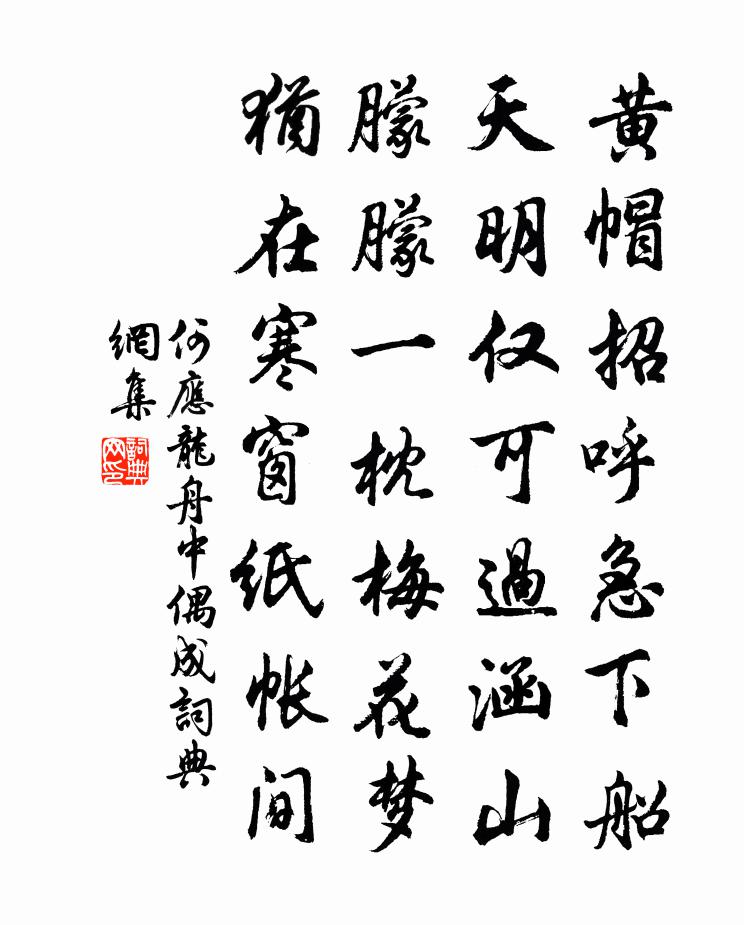 黄帽招呼急下船
天明仅可過涵山
朦朦一枕梅花梦
猶在寒窗纸帐间
何應龍舟中偶成詞典
網集
詞典
网印